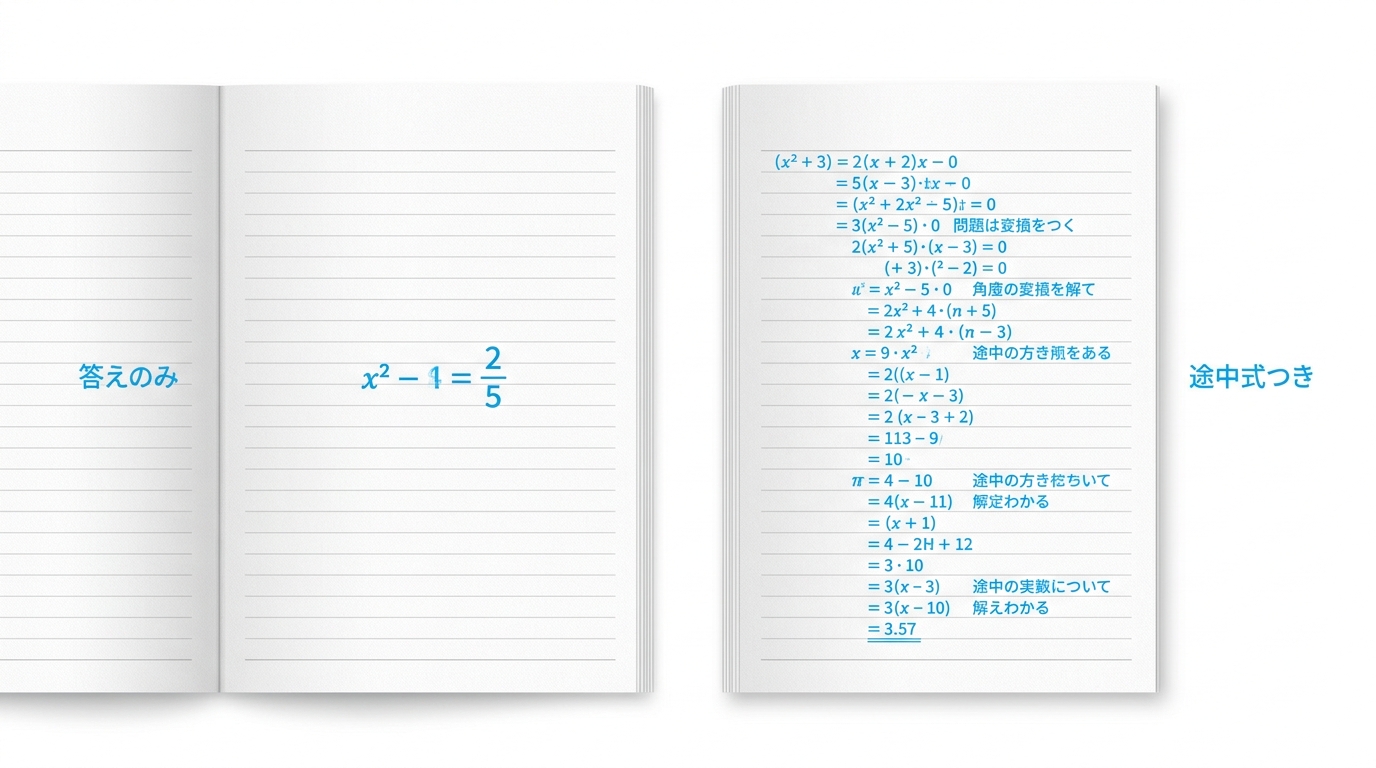 答えのみ
x² − = 2/5
(x² + 3) = 2(x + 2)x − 0
= 5(x − 3)· − 0
= (x² + 2x² − 5) = 0
= 3(x² − 5) · 0 問題は をつく
2(x² + 5)·(x − 3) = 0
(+ 3)·(² − 2) = 0
= x² − 5 · 0 を解て
= 2x² + 4·(n + 5)
= 2 x² + 4 · (n − 3)
x = 9 · x² 途中の方き をある
= 2((x − 1)
= 2(− x − 3)
= 2 (x − 3 + 2)
= 113 − 9
= 10
π = 4 − 10 途中の方き ちいて
= 4(x − 11) 解定わかる
= (x + 1)
= 4 − 2H + 12
= 3 · 10
= 3(x − 3) 途中の について
= 3(x − 10) 解えわかる
= 3.57
途中式つき